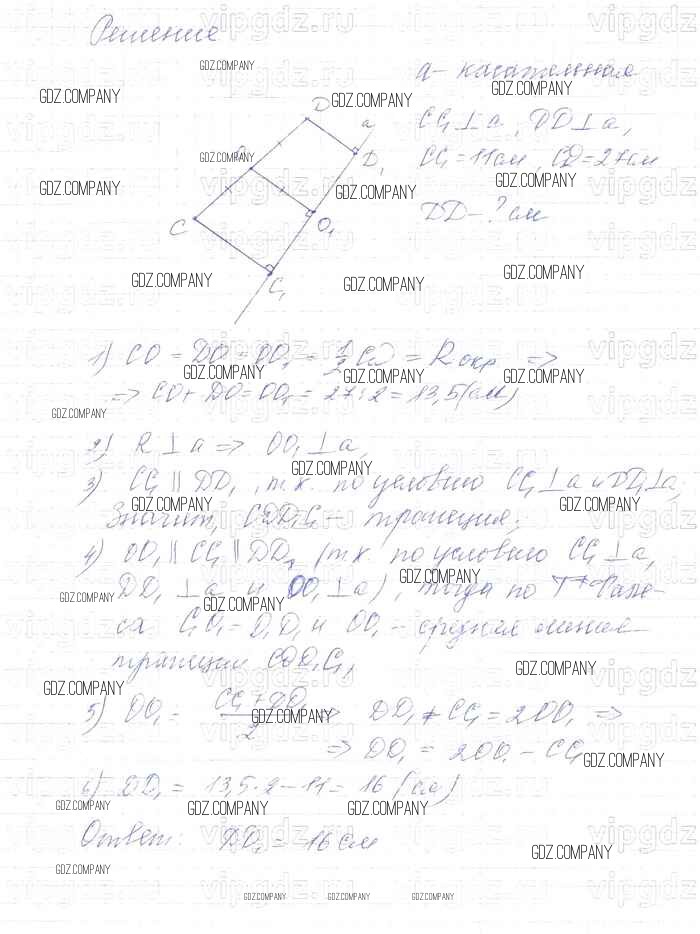 Решение
а – касательная
CC₁ ⊥ a, DD₁ ⊥ a,
CC₁ = 11 см, CD = 27 см
DD₁ – ? см
D
a
D₁
O
O₁
C
C₁
1) CO = DO = OO₁ = 1/2 CD = R окр ⇒
⇒ CO = DO = OO₁ = 27 : 2 = 13,5 (см)
2) R ⊥ a ⇒ OO₁ ⊥ a,
3) CC₁ || DD₁, т.к. по условию CC₁ ⊥ a и DD₁ ⊥ a,
Значит, CDD₁C₁ – трапеция.
4) OO₁ || CC₁ || DD₁ (т.к. по условию CC₁ ⊥ a,
DD₁ ⊥ a и OO₁ ⊥ a), тогда по Т. Фале-
са C₁O₁ = O₁D₁ и OO₁ – средняя линия
трапеции CDD₁C₁,
5) OO₁ = (CC₁ + DD₁)/2 ⇒ DD₁ + CC₁ = 2OO₁ ⇒
⇒ DD₁ = 2OO₁ – CC₁
6) DD₁ = 13,5 · 2 – 11 = 16 (см)
Ответ: DD₁ = 16 см
GDZ.COMPANY
vipgdz.ru